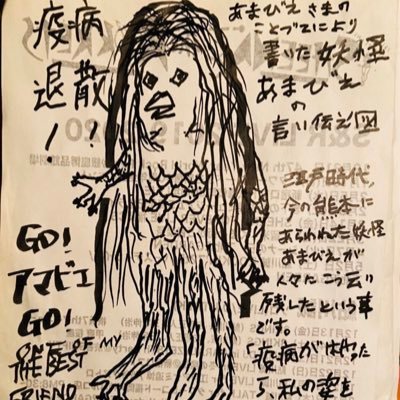 疫病
退散
!!
GO!
アマビエ
GO!
ONE OF MY
THE BEST
FRIEND
あまびえさまの
ことづてにより
書いた妖怪
あまびえ
の
言い伝え図
江戸時代、
今の熊本に
あらわれた妖怪
あまびえが
人々にこう云い
残したという事
です。
「疫病がはやった
ら、私の姿を